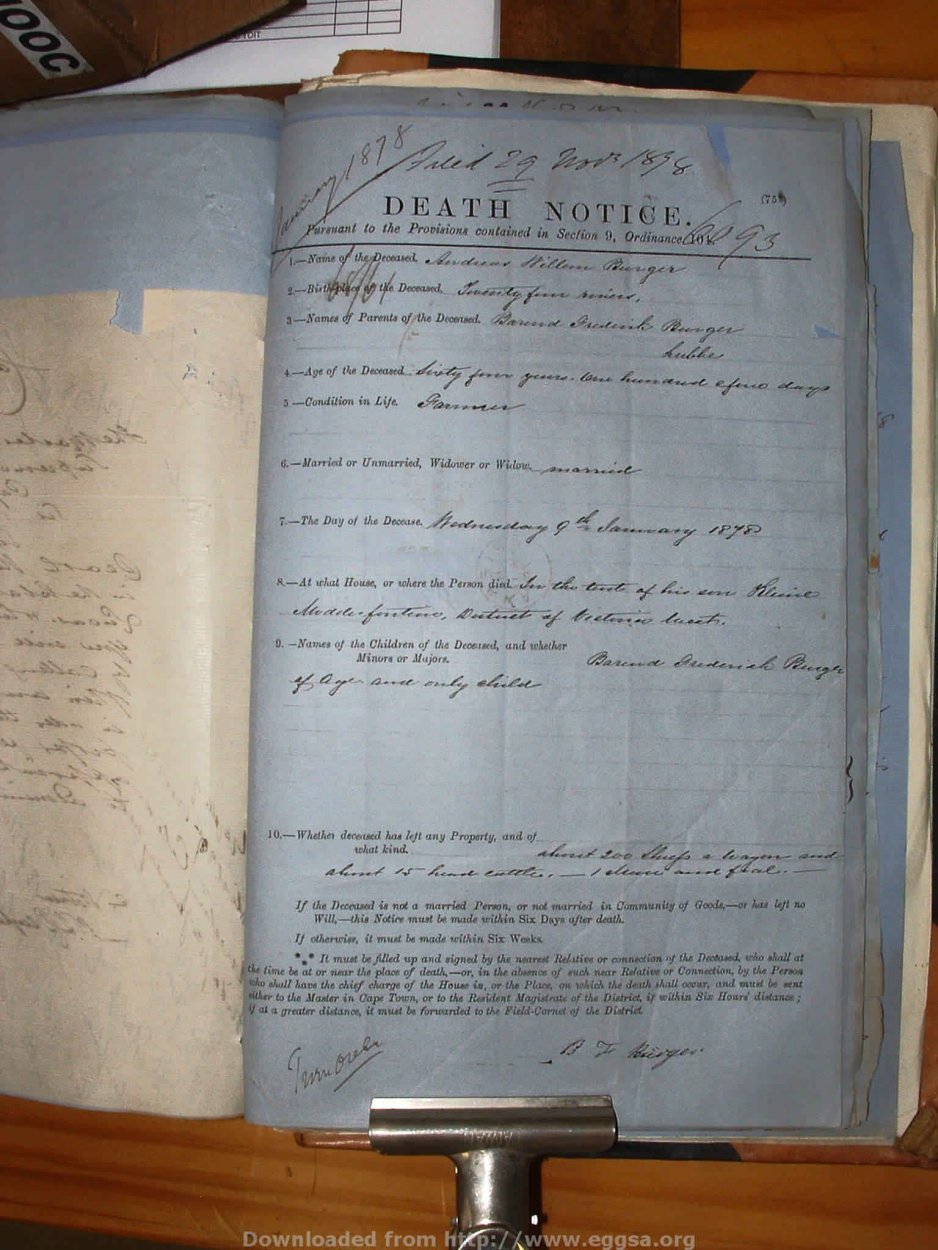 MOOC
January 1878
Filed 29 Novr 1878
(75b)
DEATH NOTICE.
Pursuant to the Provisions contained in Section 9, Ordinance 104.
93
1.—Name of the Deceased. Andreas Willem Burger
2.—Birthplace of the Deceased. Twenty four rivers.
3—Names of Parents of the Deceased. Barend Frederick Burger
Lubbe
4.—Age of the Deceased. Sixty four years. One hundred & five days
5.—Condition in Life. Farmer
6.—Married or Unmarried, Widower or Widow. married
7.—The Day of the Decease. Wednesday 9th January 1878
8.—At what House, or where the Person died. In the tent of his son Kleine
Modderfontein, District of Victoria West.
9.—Names of the Children of the Deceased, and whether
Minors or Majors. Barend Frederick Burger
of Age and only child
10.—Whether deceased has left any Property, and of
what kind. about 200 Sheep a Wagon and
about 15 head cattle. — 1 mare and foal. —
If the Deceased is not a married Person, or not married in Community of Goods,—or has left no
Will,—this Notice must be made within Six Days after death.
If otherwise, it must be made within Six Weeks.
*** It must be filled up and signed by the nearest Relative or connection of the Deceased, who shall at
the time be at or near the place of death,—or, in the absence of such near Relative or Connection, by the Person
who shall have the chief charge of the House in, or the Place, on which the death shall occur, and must be sent
either to the Master in Cape Town, or to the Resident Magistrate of the District, if within Six Hours' distance;
if at a greater distance, it must be forwarded to the Field-Cornet of the District.
Turn over
B F Burger
Downloaded from http://www.eggsa.org